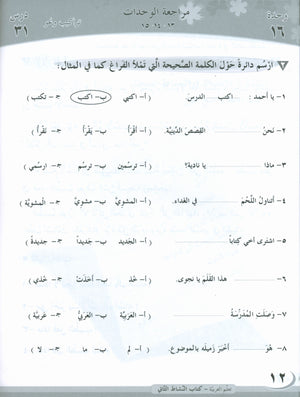 وحدة ١٦
مراجعة الوحدات
١٣، ١٤، ١٥
تراكيب ونحو
درس ٣١
٧ ارْسُم دائرةً حَوْلَ الكلمةِ الصَّحيحةِ الَّتي تَمْلأ الفراغَ كما في المثال:
١- يا أحمد: اكتب الدرسَ (أ- اكتبي ب- اكتب جـ- تكتب)
٢- نحنُ القِصَصَ الدِّينِيَّة. (أ- أَقْرَأُ ب- يَقْرَأُ جـ- نَقْرَأُ)
٣- ماذا يا نادية؟ (أ- ترسُمين ب- ترسُم جـ- ارسُمي)
٤- أتناولُ اللَّحْمَ في الغداء. (أ- المشويَّ ب- مشويٌّ جـ- المشويَّةَ)
٥- اشترى أخي كتاباً (أ- الجديد ب- جديداً جـ- جديدةً)
٦- هذا القَلَمَ يا نجوى. (أ- خُذ ب- أخذَتْ جـ- خُذي)
٧- وَصَلَت المُدَرِّسَةُ (أ- العَرَبِيَّةُ ب- العَرَبيُّ جـ- عَرَبِيَّةٌ)
٨- هُوَ أَخْبَرَ زَميلَه بالموضوع. (أ- لم ب- ما جـ- لا)
١٢
تعلم العربية - كتاب النشاط الثاني